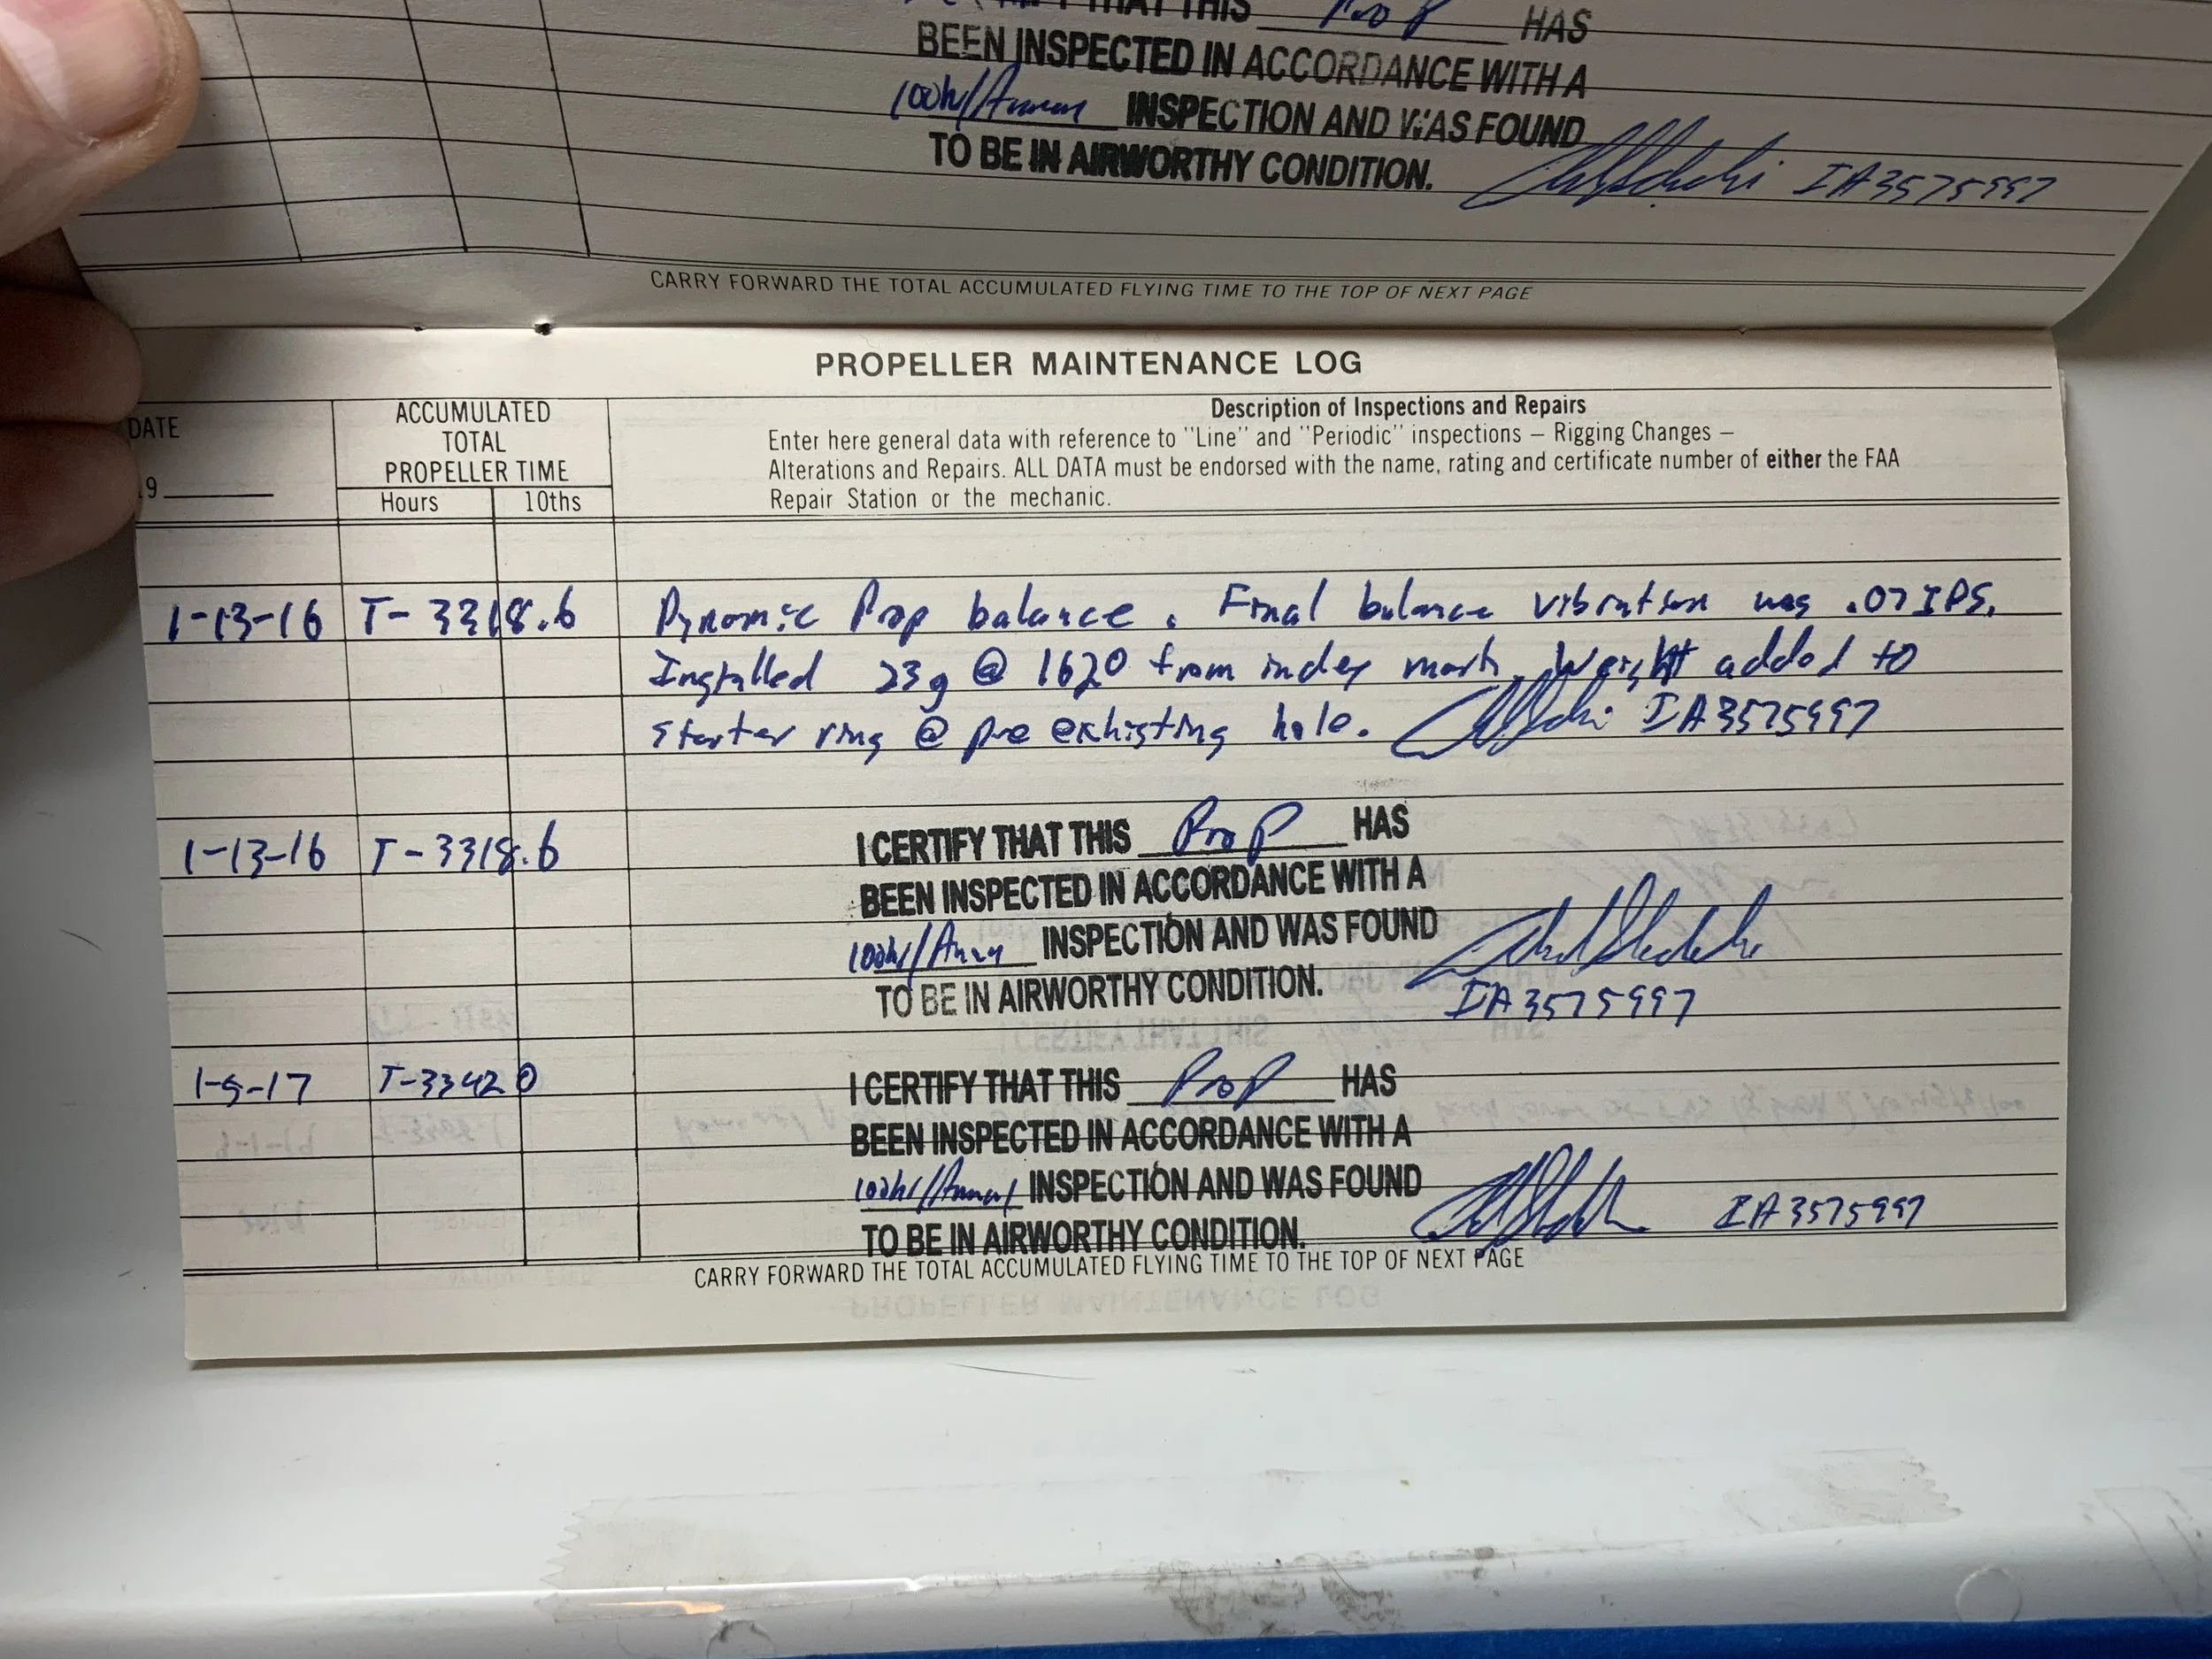 THAT THIS Prop HAS
BEEN INSPECTED IN ACCORDANCE WITH A
100hr/Annual INSPECTION AND WAS FOUND
TO BE IN AIRWORTHY CONDITION. IA3575997
CARRY FORWARD THE TOTAL ACCUMULATED FLYING TIME TO THE TOP OF NEXT PAGE
PROPELLER MAINTENANCE LOG
DATE
19
ACCUMULATED
TOTAL
PROPELLER TIME
Hours 10ths
Description of Inspections and Repairs
Enter here general data with reference to "Line" and "Periodic" inspections — Rigging Changes —
Alterations and Repairs. ALL DATA must be endorsed with the name, rating and certificate number of either the FAA
Repair Station or the mechanic.
1-13-16 T-3318.6 Dynamic Prop balance. Final balance vibration was .07 IPS.
Installed 23g @ 1620 from index mark. Weight added to
starter ring @ pre exhisting hole. IA3575997
1-13-16 T-3318.6 I CERTIFY THAT THIS Prop HAS
BEEN INSPECTED IN ACCORDANCE WITH A
100hr/Annu INSPECTION AND WAS FOUND
TO BE IN AIRWORTHY CONDITION.
IA3575997
1-5-17 T-3342 0 I CERTIFY THAT THIS Prop HAS
BEEN INSPECTED IN ACCORDANCE WITH A
100hr/Annual INSPECTION AND WAS FOUND
TO BE IN AIRWORTHY CONDITION. IA3575997
CARRY FORWARD THE TOTAL ACCUMULATED FLYING TIME TO THE TOP OF NEXT PAGE
PROPELLER MAINTENANCE LOG